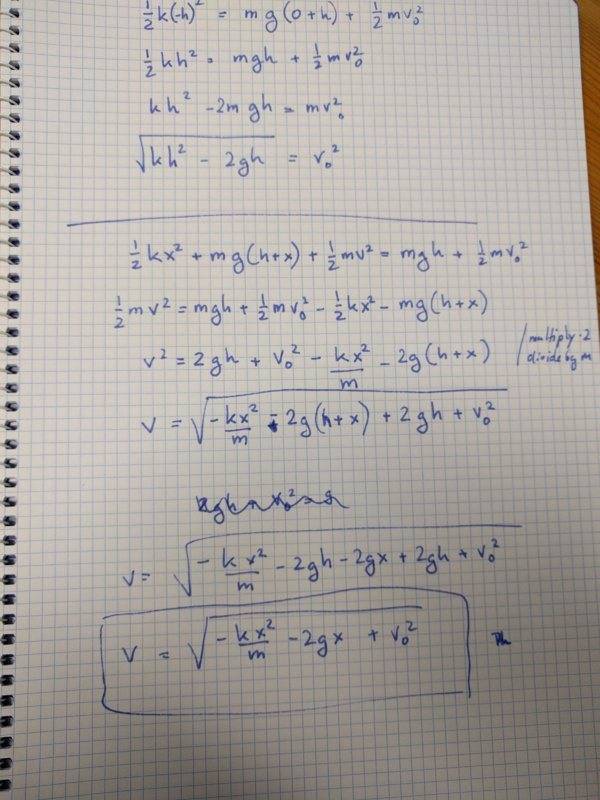 ½k(-h)² = mg(0+h) + ½mv₀²
½kh² = mgh + ½mv₀²
kh² - 2mgh = mv₀²
√(kh² - 2gh) = v₀²
½kx² + mg(h+x) + ½mv² = mgh + ½mv₀²
½mv² = mgh + ½mv₀² - ½kx² - mg(h+x)
v² = 2gh + v₀² - kx²/m - 2g(h+x) / multiply·2
divide by m
v = √(-kx²/m - 2g(h+x) + 2gh + v₀²)
v = √(-kx²/m - 2gh - 2gx + 2gh + v₀²)
v = √(-kx²/m - 2gx + v₀²)